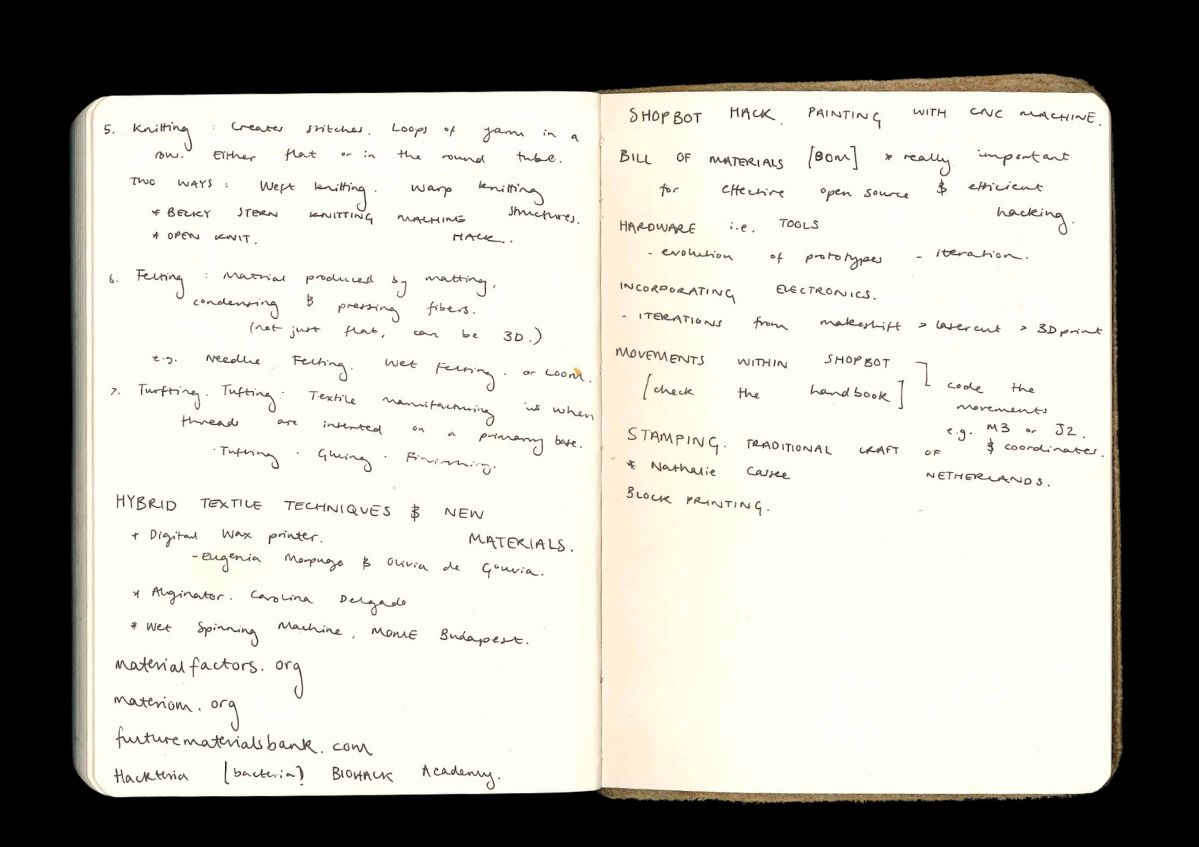 5. Knitting : Creates stitches. Loops of yarn in a
row. Either flat or in the round tube.
TWO WAYS : Weft knitting. Warp knitting
* BECKY STERN KNITTING MACHINE structures.
* OPEN KNIT. HACK.
6. Felting : Material produced by matting,
condensing & pressing fibers.
(not just flat, can be 3D.)
e.g. Needle Felting. Wet Felting. or Loom.
7. Turfting. Tufting : Textile manufacturing is when
threads are inserted on a primary base.
· Tufting · Gluing · Finishing.
HYBRID TEXTILE TECHNIQUES & NEW
MATERIALS.
* Digital Wax printer.
- Eugenia Morpugo & Olivia de Gouvia.
* Alginator. Carolina Delgado
* Wet Spinning Machine, MOME Budapest.
materialfactors. org
materiom. org
futurematerialsbank. com
Hackteria [bacteria] BIOHACK Academy.
SHOPBOT HACK. PAINTING WITH CNC MACHINE.
BILL OF MATERIALS [BOM] * really important
for effective open source & efficient
hacking.
HARDWARE i.e. TOOLS
- evolution of prototypes - iteration.
INCORPORATING ELECTRONICS.
- ITERATIONS from makeshift > laser cut > 3D print
MOVEMENTS WITHIN SHOPBOT
[check the handbook] code the
movements
e.g. M3 or J2.
& coordinates.
STAMPING. TRADITIONAL CRAFT OF
NETHERLANDS.
* Nathalie Cassee
BLOCK PRINTING.